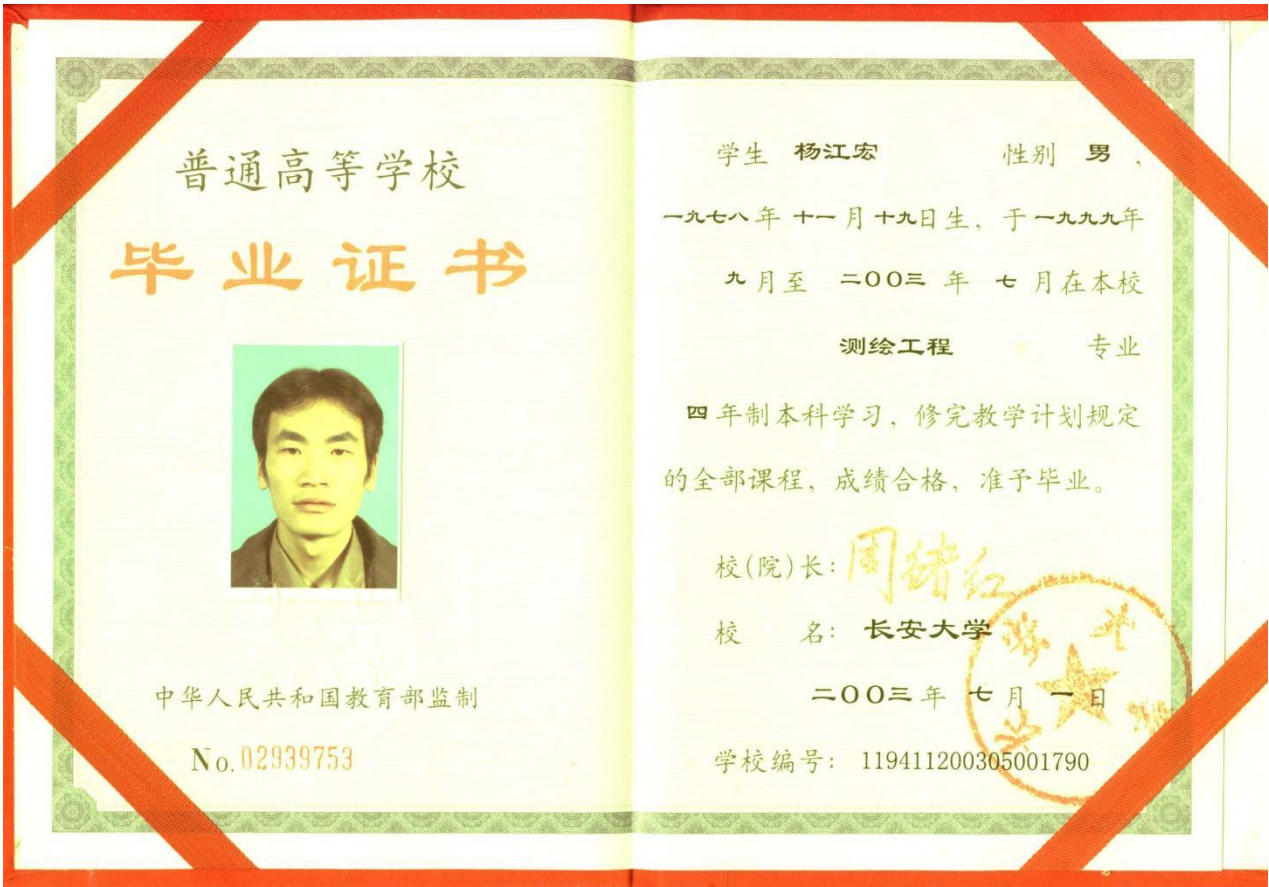 普通高等学校
毕业证书
中华人民共和国教育部监制
No. 02939753
学生 杨江宏 性别 男 ,
一九七八年 十一月 十九日生, 于一九九九年
九月至 二〇〇三 年 七 月在本校
测绘工程 专业
四年制本科学习, 修完教学计划规定
的全部课程, 成绩合格, 准予毕业。
校(院)长: 周绪红
校 名: 长安大学
二〇〇三年 七月 一日
学校编号: 119411200305001790